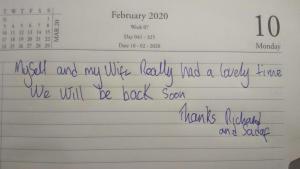 February 2020
Week 07
Day 041 - 325
Date 10 - 02 - 2020
10
Monday
T W T F S S
MAR 20
Myself and my Wife Really had a lovely time
We will be back soon
Thanks Richard
and Sadaf